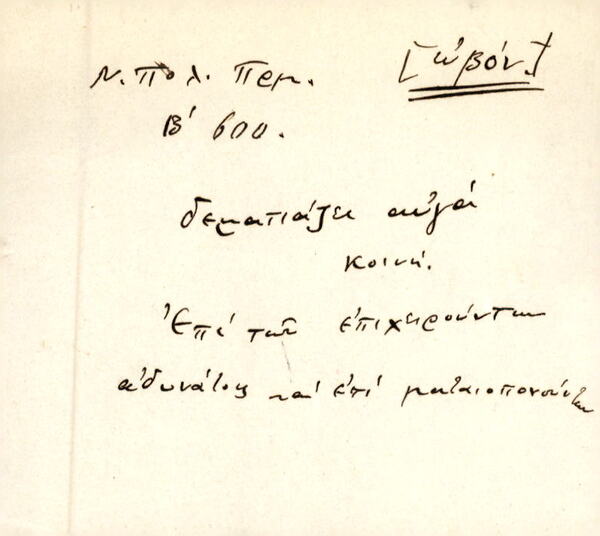 Ν. Πολ. Παρ. [ᾠόν.]
Β' 600.
δεματιάζει αὐγά
κοινή.
Ἐπὶ τῶν ἐπιχειρούντων
ἀδυνάτοις καὶ ἐπὶ ματαιοπονούντων